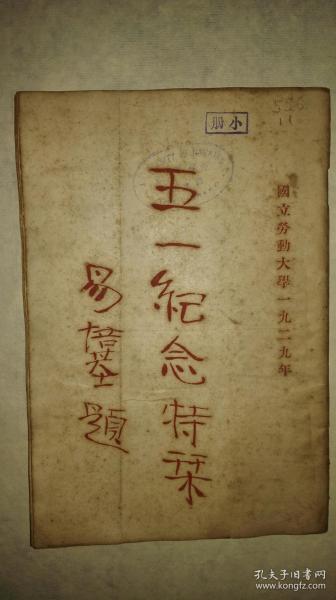 小册
國立勞動大學一九二九年
五一紀念特栞
易培基題
孔夫子旧书网